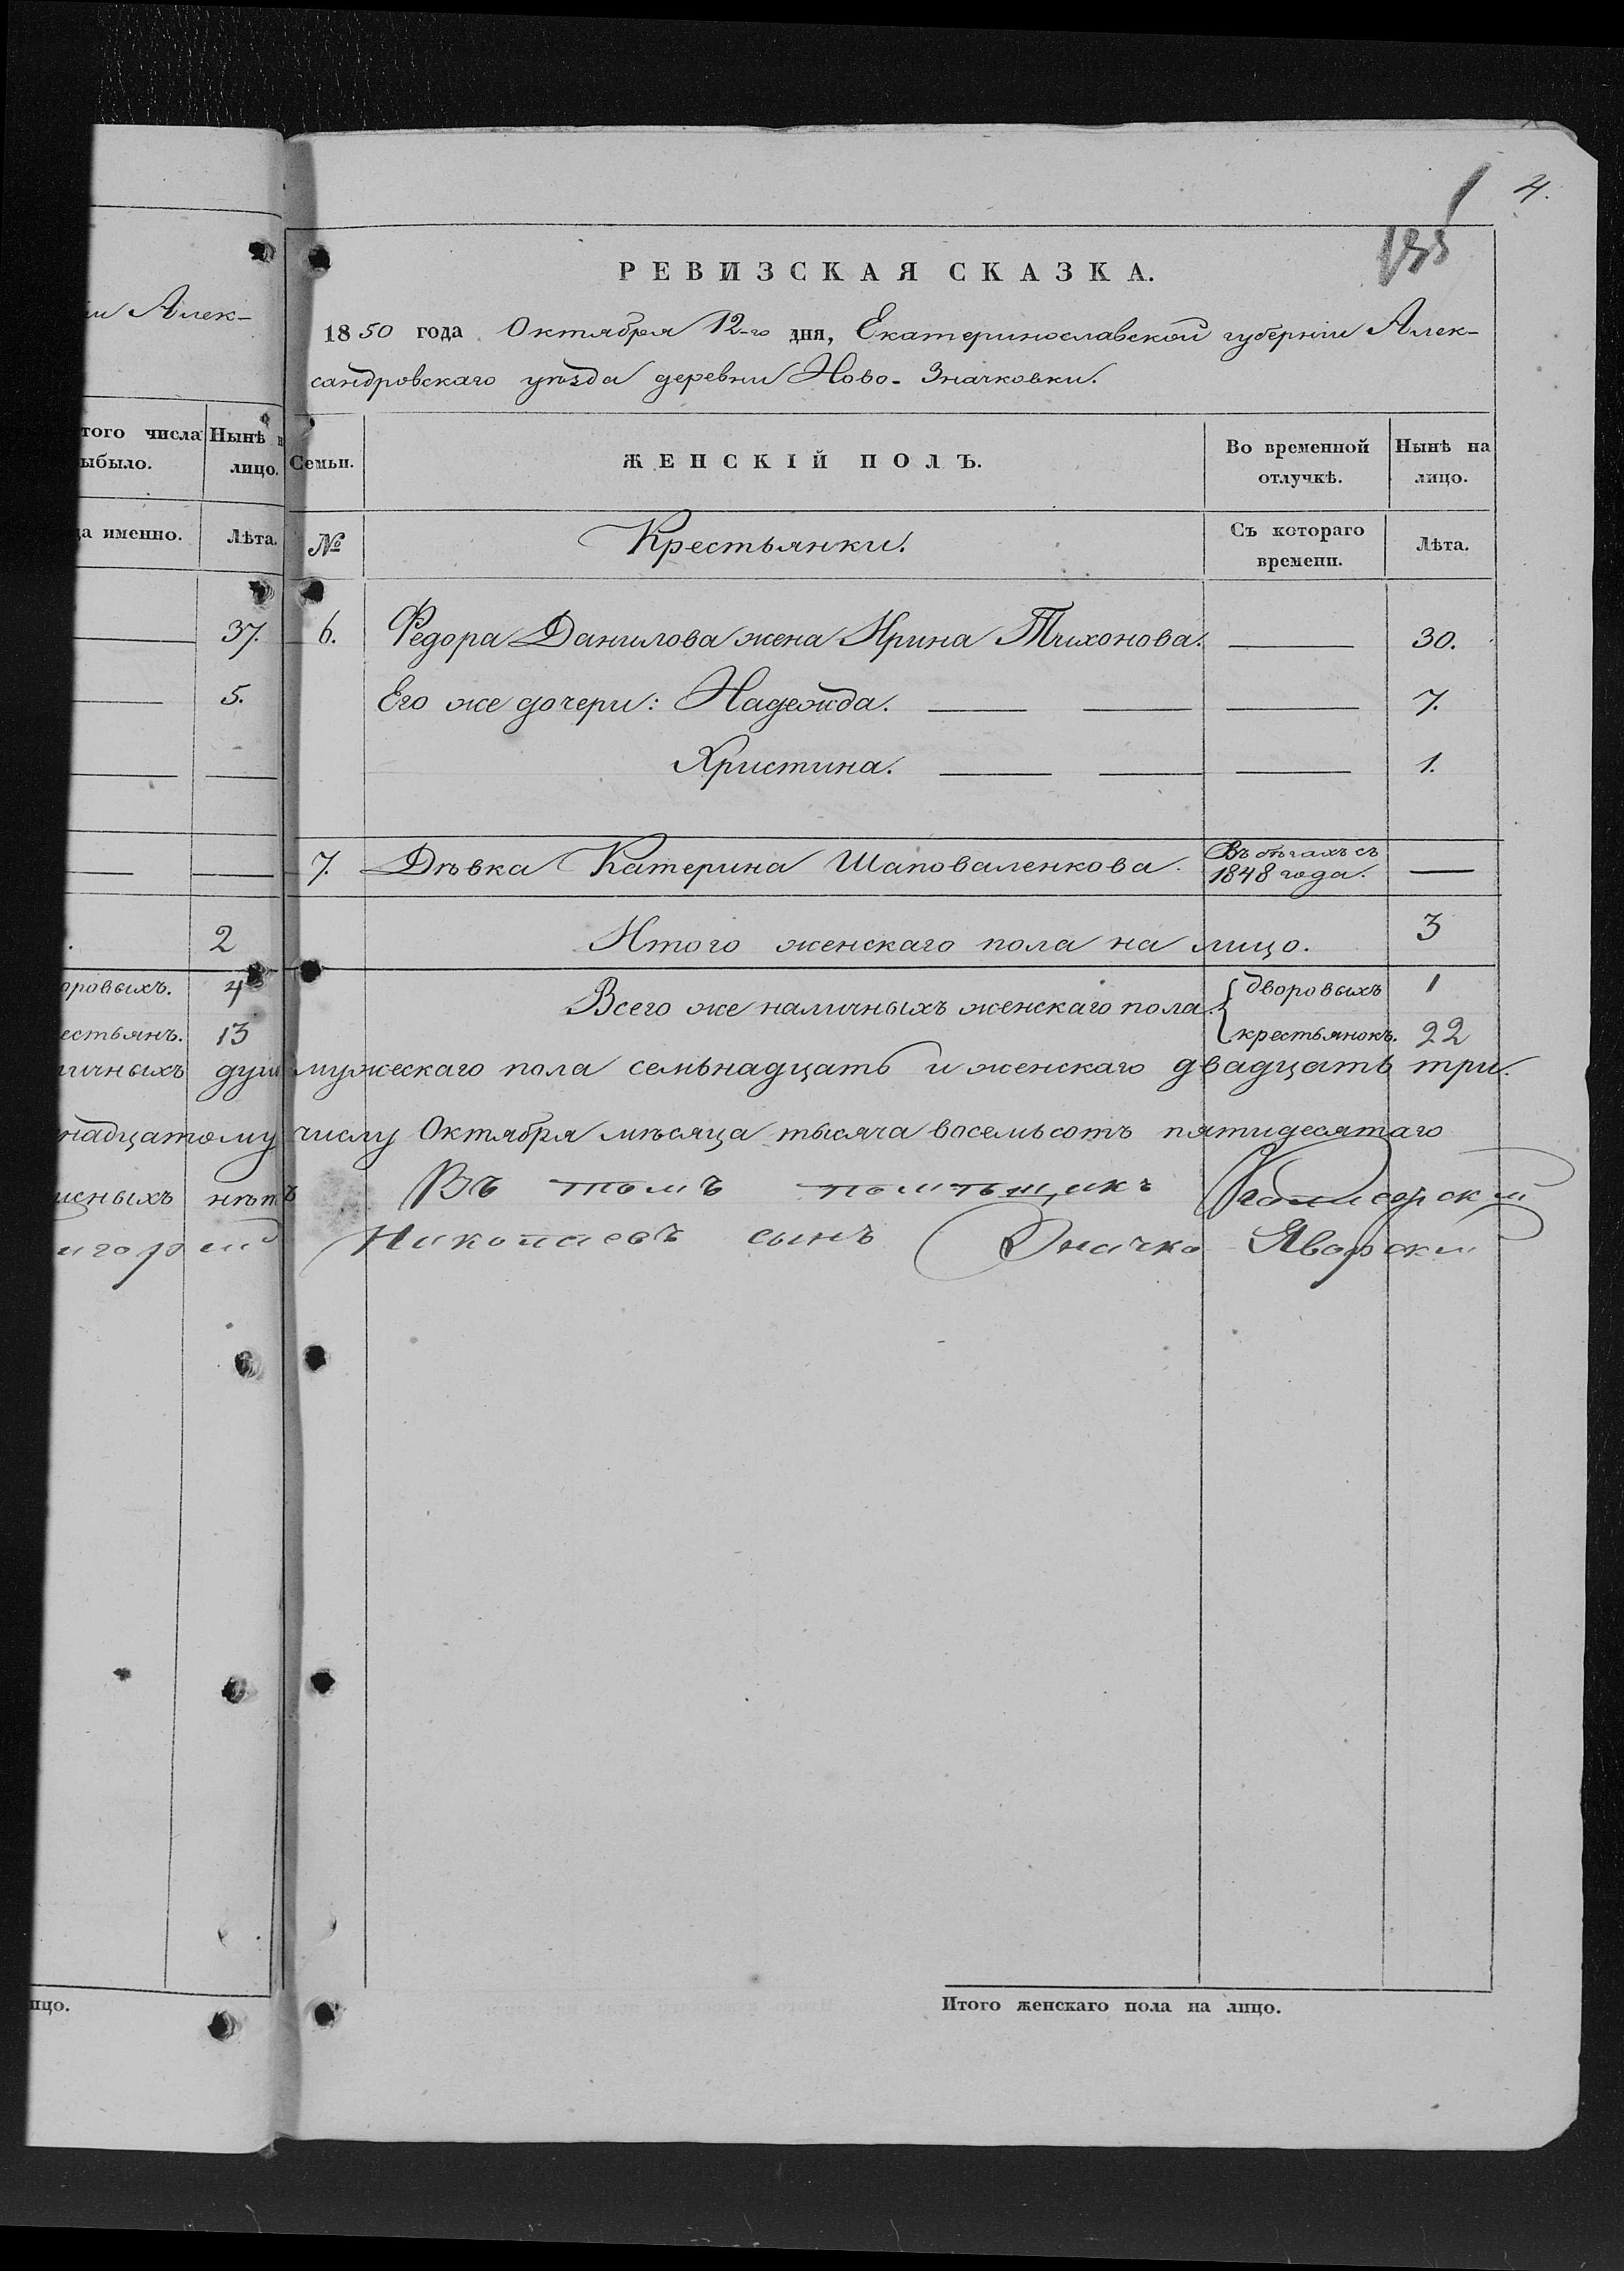 4.
РЕВИЗСКАЯ СКАЗКА.
1850 года Октября 12-го дня, Екатеринославской губерніи Алек-
сандровскаго уѣзда деревни Ново-Значковки.
Семьи. ЖЕНСКІЙ ПОЛЪ. Во временной отлучкѣ. Нынѣ на лицо.
№ Крестьянки. Съ котораго времени. Лѣта.
6. Федора Данилова жена Ирина Тихонова. 30.
Его же дочери: Надежда. 7.
Христина. 1.
7. Дѣвка Катерина Шаповаленкова. Въ бѣгахъ съ 1848 года.
Итого женскаго пола на лицо. 3
Всего же наличныхъ женскаго пола дворовыхъ 1
крестьянокъ. 22
мужескаго пола семьнадцать и женскаго двадцать три.
числу Октября мѣсяца тысяча восемьсотъ пятидесятаго
Въ томъ помѣщикъ
Николаевъ сынъ Значко Яворскій
Итого женскаго пола на лицо.
Алек-
того числа
ыбыло.
Нынѣ
лицо.
а именно. Лѣта.
37.
5.
2
оровыхъ. 4
естьянъ. 13
личныхъ душъ
надцатому
нѣтъ
ицо.